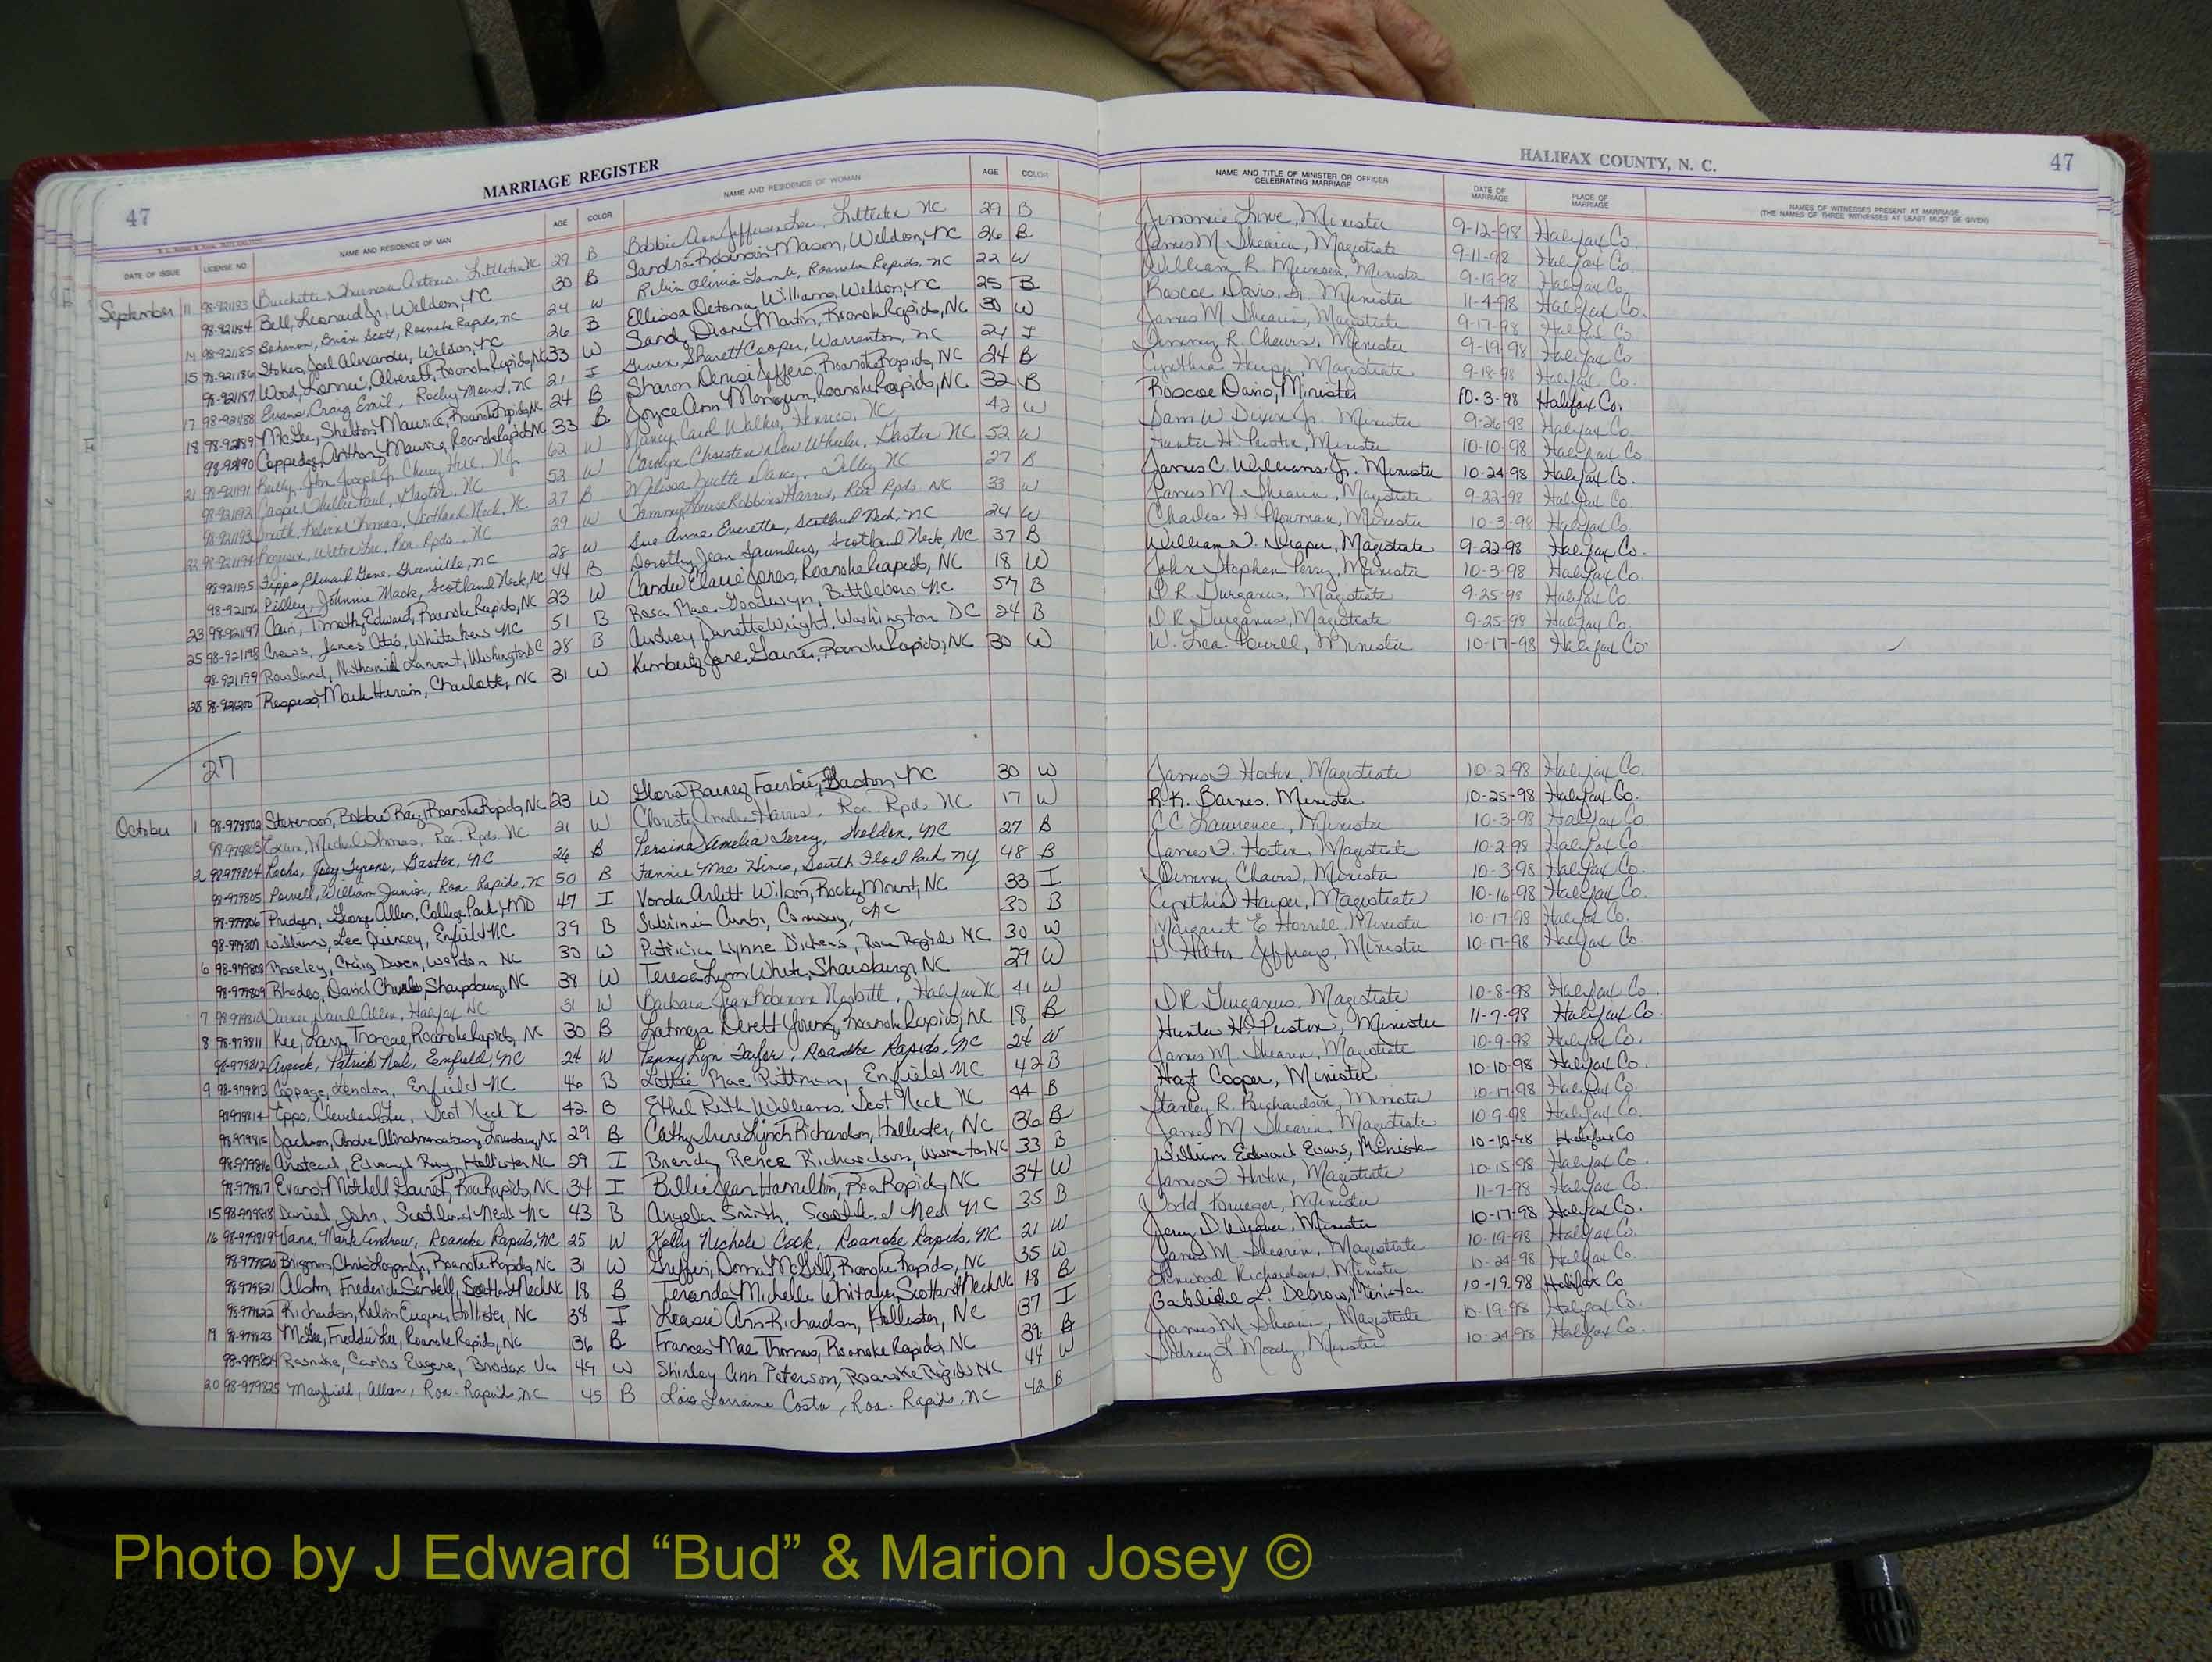 MARRIAGE REGISTER
HALIFAX COUNTY, N. C.
47
47
DATE OF ISSUE LICENSE NO. NAME AND RESIDENCE OF MAN AGE COLOR NAME AND RESIDENCE OF WOMAN AGE COLOR NAME AND TITLE OF MINISTER OR OFFICER CELEBRATING MARRIAGE DATE OF MARRIAGE PLACE OF MARRIAGE NAMES OF WITNESSES PRESENT AT MARRIAGE (THE NAMES OF THREE WITNESSES AT LEAST MUST BE GIVEN)
September 11 98-921183 29 B Bobbie Ann Jefferson Lee, Littleton NC 29 B Jimmie Lowe, Minister 9-12-98 Halifax Co.
98-921184 Bell, Leonard Jr, Weldon, NC 30 B Sandra Robinson Mason, Weldon, NC 26 B James M Shearin, Magistrate 9-11-98 Halifax Co.
14 98-921185 Scott, Roanoke Rapids, NC 24 W Robin Olivia Lamb, Roanoke Rapids, NC 22 W William R. Munson, Minister 9-19-98 Halifax Co.
15 98-921186 Stokes, Joel Alexander, Weldon, NC 26 B Williams, Weldon, NC 25 B Roscoe Davis, Sr. Minister 11-4-98 Halifax Co.
98-921187 Wood, Roanoke Rapids, NC 33 W Sandy Diane Martin, Roanoke Rapids, NC 30 W James M Shearin, Magistrate 9-17-98 Halifax Co
17 98-921188 Evans, Craig Emil, Rocky Mount, NC 21 I Cooper, Warrenton, NC 21 I Jimmy R. Chavis, Minister 9-19-98 Halifax Co
18 98-921189 McGee, Shelton Maurice, Roanoke Rapids, NC 24 B Sharon Denise Jeffers, Roanoke Rapids, NC 24 B Cynthia Harper, Magistrate 9-18-98 Halifax Co.
98-921190 Coppedge, Anthony Maurice, Roanoke Rapids NC 33 B Joyce Ann Roanoke Rapids, NC 32 B Roscoe Davis, Minister 10-3-98 Halifax Co.
21 98-921191 Joseph Jr, Cherry Hill, NJ 62 W Nancy Carol Walker, Henrico, NC 42 W Sam W Dixon Jr. Minister 9-26-98 Halifax Co.
98-921192 Casper, Paul, Gaston, NC 52 W Carolyn Christine Wheeler, Gaston NC 52 W Hunter H. Preston, Minister 10-10-98 Halifax Co.
98-921193 Smith, Thomas, Scotland Neck, NC 27 B Melissa Tillery NC 27 B James C. Williams Jr. Minister 10-24-98 Halifax Co.
22 98-921194 Lee, Roa. Rpds. NC 29 W Tammy Robbins Harris, Roa Rpds NC 33 W James M Shearin, Magistrate 9-22-98 Halifax Co
98-921195 Tripp, Edward Gene, Greenville, NC 28 W Sue Anne Everette, Scotland Neck, NC 24 W Charles H Plowman, Minister 10-3-98 Halifax Co.
98-921196 Pidley, Johnnie Mack, Scotland Neck, NC 44 B Dorothy Jean Saunders, Scotland Neck, NC 37 B William J. Draper, Magistrate 9-22-98 Halifax Co.
23 98-921197 Cain, Timothy Edward, Roanoke Rapids, NC 23 W Candie Elaine Jones, Roanoke Rapids, NC 18 W John Stephen Perry, Minister 10-3-98 Halifax Co.
25 98-921198 Crews, James Otis, Whitakers NC 51 B Rosa Mae Goodwyn, Battleboro NC 57 B D.R. Gurganus, Magistrate 9-25-98 Halifax Co.
98-921199 Rowland, Nathaniel Lamont, Washington DC 28 B Audrey Junette Wright, Washington DC 24 B D R Gurganus, Magistrate 9-25-98 Halifax Co.
28 98-921200 Respess, Mark Hursin, Charlotte, NC 31 W Kimberly Jane Roanoke Rapids, NC 30 W W. Lea Powell, Minister 10-17-98 Halifax Co.
27
October 1 98-979802 Stevenson, Bobbie Ray, Roanoke Rapids, NC 23 W Gloria Gaston, NC 30 W James F Hooten, Magistrate 10-2-98 Halifax Co.
98-979803 Evans, Michael Thomas, Roa Rpds NC 21 W Christy Amelia Harris, Roa Rpds NC 17 W R.K. Barnes. Minister 10-25-98 Halifax Co.
2 98-979804 Joey Tyrone, Gaston, NC 26 B Persina Amelia Terry, Weldon, NC 27 B CC Lawrence, Minister 10-3-98 Halifax Co
98-979805 Powell, William Junior, Roa Rapids, NC 50 B Fannie Mae Hines, South Floral Park, NY 48 B James F. Hooten, Magistrate 10-2-98 Halifax Co.
98-979806 Pridgen, George Allen, College Park, MD 47 I Vonda Arlett Wilson, Rocky Mount, NC 33 I Jimmy Chavis, Minister 10-3-98 Halifax Co.
98-979807 Williams, Lee Quincey, Enfield NC 39 B Conway, NC 30 B Cynthia Harper, Magistrate 10-16-98 Halifax Co.
6 98-979808 Moseley, Craig Owen, Weldon NC 30 W Patricia Lynne Dickens, Roa Rapids NC 30 W Margaret E Harrell, Minister 10-17-98 Halifax Co.
98-979809 Rhodes, David Charles, Sharpsburg, NC 38 W Teresa Lynn White, Sharpsburg, NC 29 W Jeffreys, Minister 10-17-98 Halifax Co.
7 98-979810 Turner, David Allen, Halifax NC 31 W Barbara Jean Robinson Nesbitt, Halifax NC 41 W D R Gurganus, Magistrate 10-8-98 Halifax Co.
8 98-979811 Kee, Larry Roanoke Rapids, NC 30 B Latonya Derett Young, Roanoke Rapids, NC 18 B Hunter H. Preston, Minister 11-7-98 Halifax Co.
98-979812 Aycock, Patrick Neil, Enfield, NC 24 W Penny Lyn Taylor, Roanoke Rapids, NC 24 W James M Shearin, Magistrate 10-9-98 Halifax Co.
9 98-979813 Coppage, Lendon, Enfield NC 46 B Lottie Rae Pittman, Enfield NC 42 B Hoyt Cooper, Minister 10-10-98 Halifax Co.
98-979814 Epps, Cleveland Lee, Scot Neck NC 42 B Ethel Ruth Williams, Scot Neck NC 44 B Stanley R. Richardson, Minister 10-17-98 Halifax Co.
98-979815 Jackson, Andre Louisburg NC 29 B Cathy Irene Lynch Richardson, Hollister, NC 36 B James M Shearin, Magistrate 10-9-98 Halifax Co.
98-979816 Anstead, Edward Ray, Hollister NC 29 I Brenda Renee Richardson, Warrenton NC 33 B William Edward Evans, Minister 10-10-98 Halifax Co
98-979817 Evans, Mitchell Roa Rapids, NC 34 I Billie Jean Hamilton, Roa Rapids, NC 34 W James F Hooten, Magistrate 10-15-98 Halifax Co.
15 98-979818 Daniel, John, Scotland Neck NC 43 B Angela Smith, Scotland Neck NC 35 B Todd Krueger, Minister 11-7-98 Halifax Co.
16 98-979819 Vann, Mark Andrew, Roanoke Rapids, NC 25 W Kelly Nichole Cook, Roanoke Rapids, NC 21 W Jerry D. Weaver, Minister 10-17-98 Halifax Co.
98-979820 Roanoke Rapids, NC 31 W Griffin, Donna McGill, Roanoke Rapids, NC 35 W James M Shearin, Magistrate 10-19-98 Halifax Co.
98-979821 Alston, Frederick Scotland Neck NC 18 B Michelle Whitaker, Scotland Neck NC 18 B Richardson, Minister 10-24-98 Halifax Co.
98-979822 Richardson, Kelvin Eugene, Hollister, NC 38 I Ann Richardson, Hollister, NC 37 I L. Debrow, Minister 10-19-98 Halifax Co
19 98-979823 McGee, Freddie Lee, Roanoke Rapids, NC 36 B Frances Mae Thomas, Roanoke Rapids, NC 39 B James M Shearin, Magistrate 10-19-98 Halifax Co.
98-979824 Carlos Eugene, Va 49 W Shirley Ann Peterson, Roanoke Rapids NC 44 W Sidney L Moody, Minister 10-24-98 Halifax Co.
20 98-979825 Mayfield, Allen, Roa. Rapids, NC 45 B Lois Lorraine Costa, Roa. Rapids, NC 42 B
Photo by J Edward “Bud” & Marion Josey ©